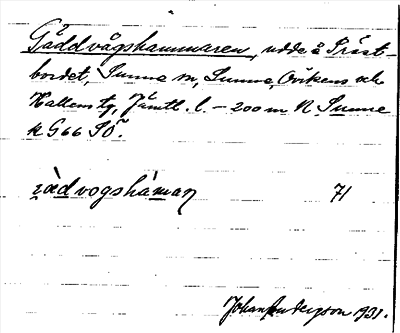 Gäddvågshammaren, udde å Präst-
bordet, Sunne sn, Sunne, Ovikens och
Hallens tg, Jämtl. l. – 200 m N. Sunne
k G66 SÖ.
jädvogshàman 71
Johan Anderzson 1931.